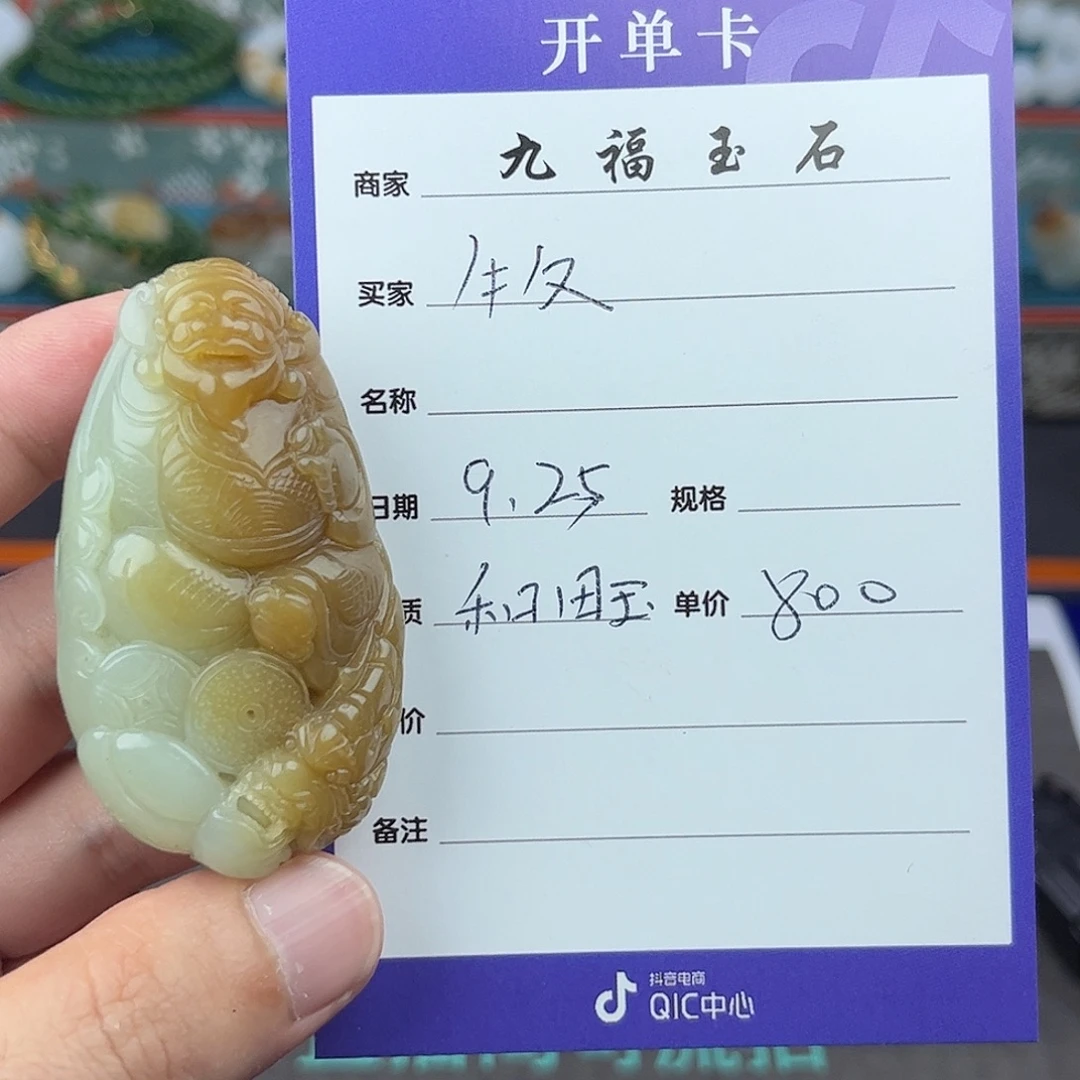 开单卡
商家 九福玉石
买家
名称
日期 9.25 规格
质 和田玉 单价 800
价
备注
抖音电商
QIC中心